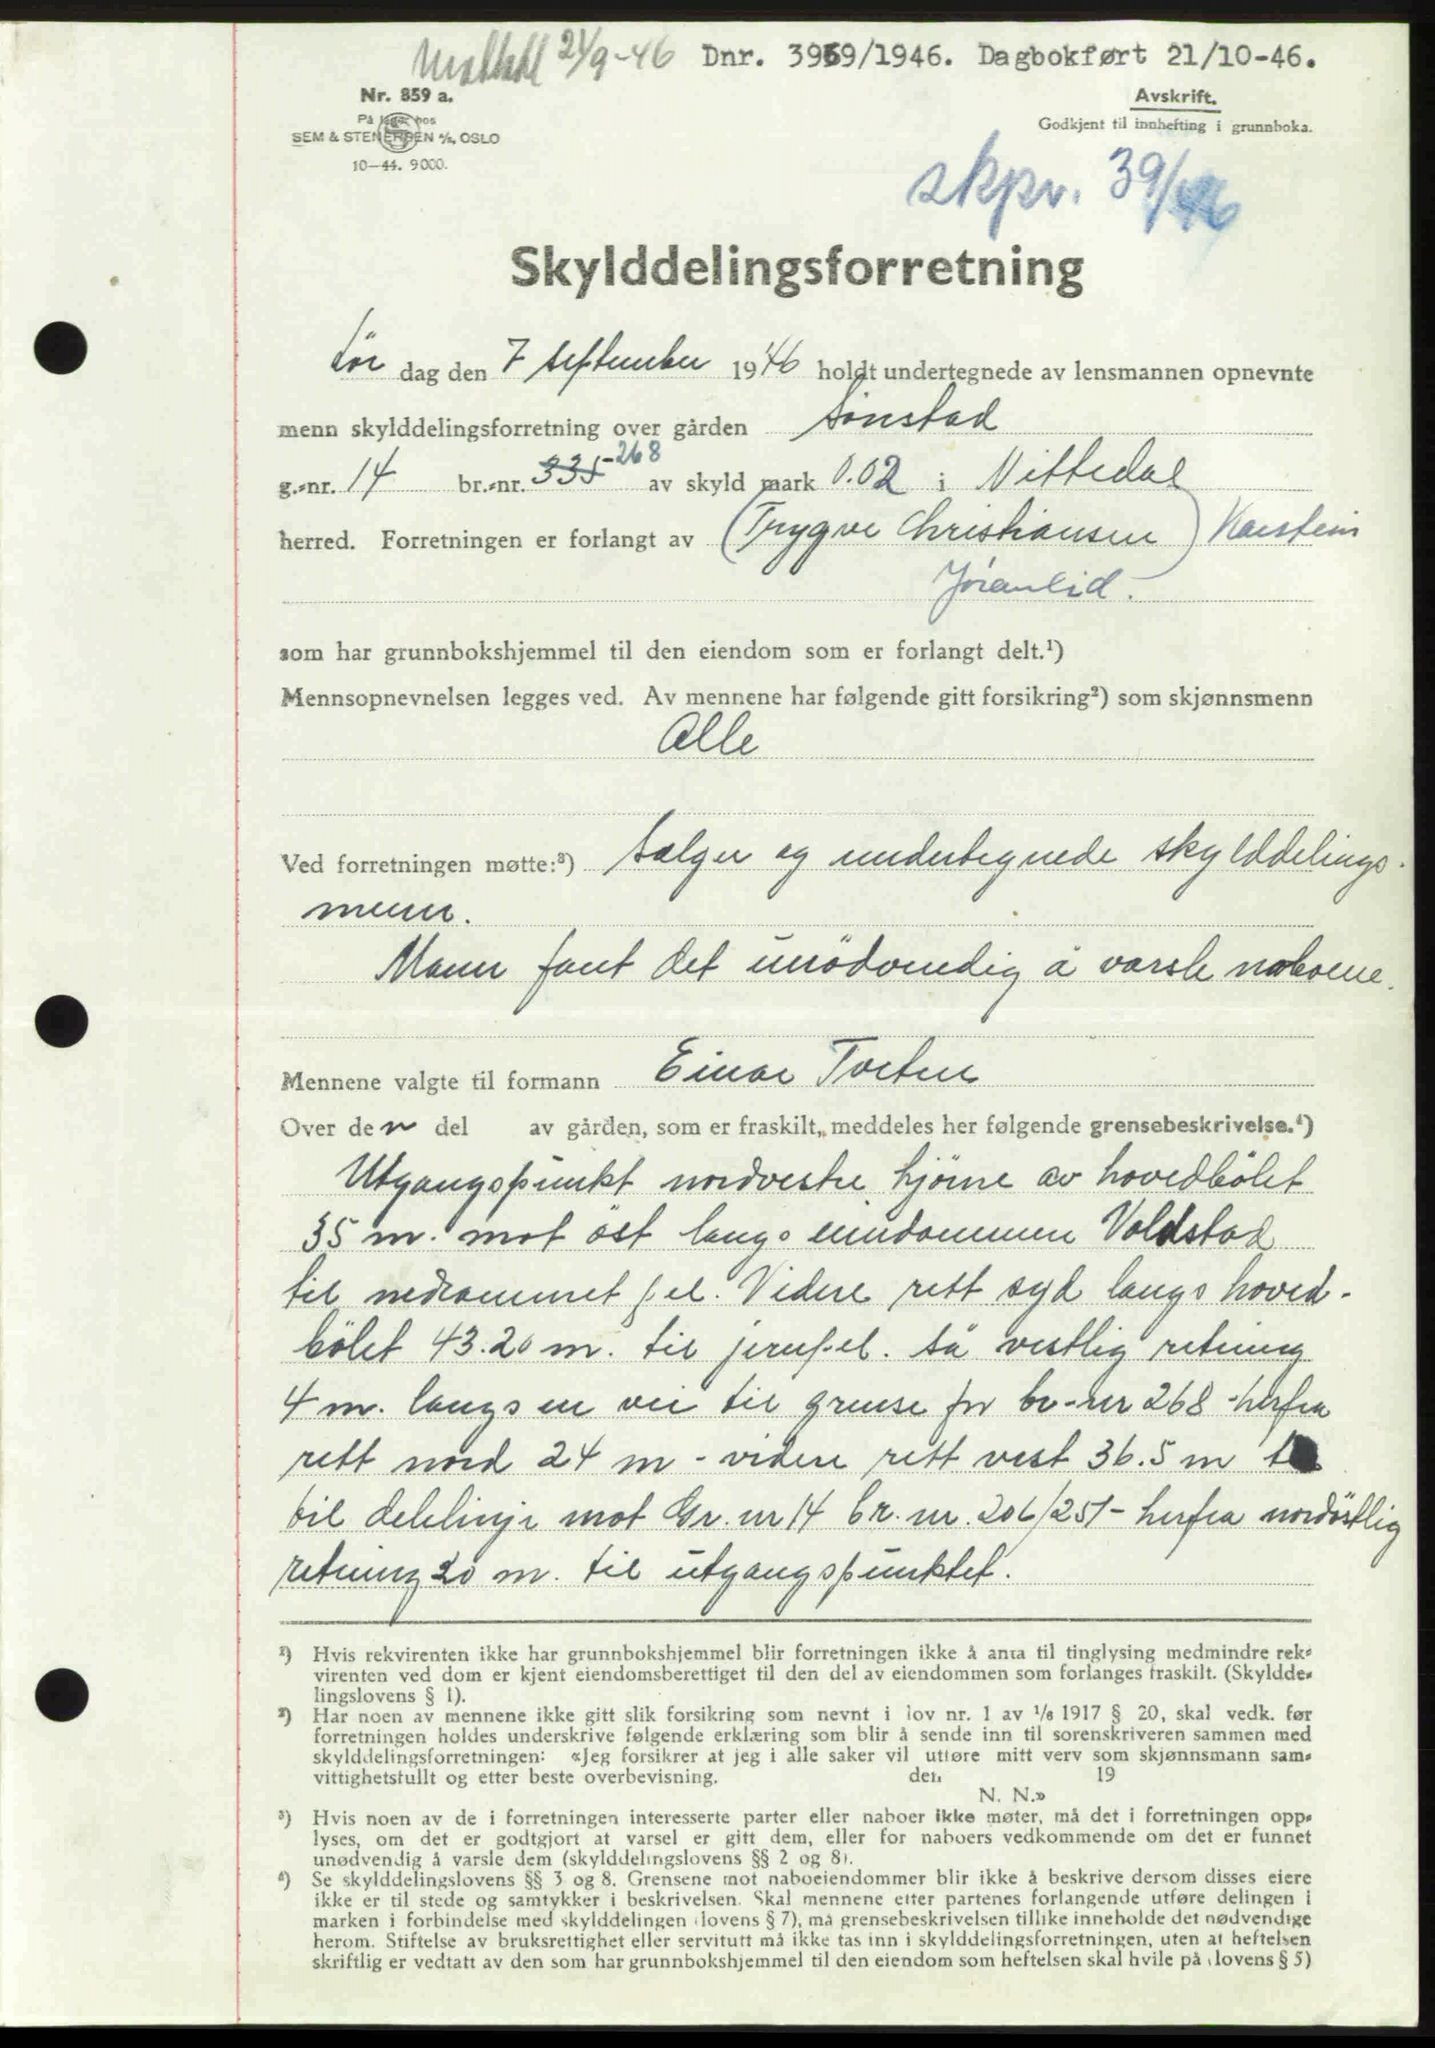 Mottatt 21/9-46 Dnr. 3969/1946. Dagbokført 21/10-46.
Nr. 859 a.
På lager hos
SEM & STENERSEN A/S, OSLO
10-44. 9000.
Avskrift.
Godkjent til innhefting i grunnboka.
skpr. 39/46
Skylddelingsforretning
Lør dag den 7 september 1946 holdt undertegnede av lensmannen opnevnte
menn skylddelingsforretning over gården Sönstad
g.-nr. 14 br.-nr. 335 268 av skyld mark 0.02 i Nittedal
herred. Forretningen er forlangt av (Trygve Christiansen) Karstein
Jöranlid.
som har grunnbokshjemmel til den eiendom som er forlangt delt.¹)
Mennsopnevnelsen legges ved. Av mennene har følgende gitt forsikring²) som skjønnsmenn
Alle
Ved forretningen møtte:³) Selger og undertegnede skylddelings-
menn.
Mann fant det unödvendig å varsle naboene.
Mennene valgte til formann Einar Torten
Over den del av gården, som er fraskilt, meddeles her følgende grensebeskrivelse.⁴)
Utgangspunkt nordvestre hjörne av hovedbölet
35 m. mot öst langs eiendommen Voldstad
til nedrammet pel. Videre rett syd langs hoved-
bölet 43.20 m. til jernpel. så vestlig retning
4 m. langs en vei til grense for br-nr 268 - herfra
rett nord 24 m - videre rett vest 36.5 m
til delelinje mot Gr. nr 14 br. nr. 206/251 - herfra nordöstlig
retning 20 m. til utgangspunktet.
¹) Hvis rekvirenten ikke har grunnbokshjemmel blir forretningen ikke å anta til tinglysing medmindre rek-
virenten ved dom er kjent eiendomsberettiget til den del av eiendommen som forlanges fraskilt. (Skyldde-
lingslovens § 1).
²) Har noen av mennene ikke gitt slik forsikring som nevnt i lov nr. 1 av 1/6 1917 § 20, skal vedk. før
forretningen holdes underskrive følgende erklæring som blir å sende inn til sorenskriveren sammen med
skylddelingsforretningen: «Jeg forsikrer at jeg i alle saker vil utføre mitt verv som skjønnsmann sam-
vittighetsfullt og etter beste overbevisning. den 19
N. N.»
³) Hvis noen av de i forretningen interesserte parter eller naboer ikke møter, må det i forretningen opp-
lyses, om det er godtgjort at varsel er gitt dem, eller for naboers vedkommende om det er funnet
unødvendig å varsle dem (skylddelingslovens §§ 2 og 8).
⁴) Se skylddelingslovens §§ 3 og 8. Grensene mot naboeiendommer blir ikke å beskrive dersom disses eiere
ikke er til stede og samtykker i beskrivelsen. Skal mennene etter partenes forlangende utføre delingen i
marken i forbindelse med skylddelingen (lovens § 7), må grensebeskrivelsen tillike inneholde det nødvendige
herom. Stiftelse av bruksrettighet eller servitutt må ikke tas inn i skylddelingsforretningen, uten at heftelsen
skriftlig er vedtatt av den som har grunnbokshjemmel til den eiendom som heftelsen skal hvile på (lovens § 5)